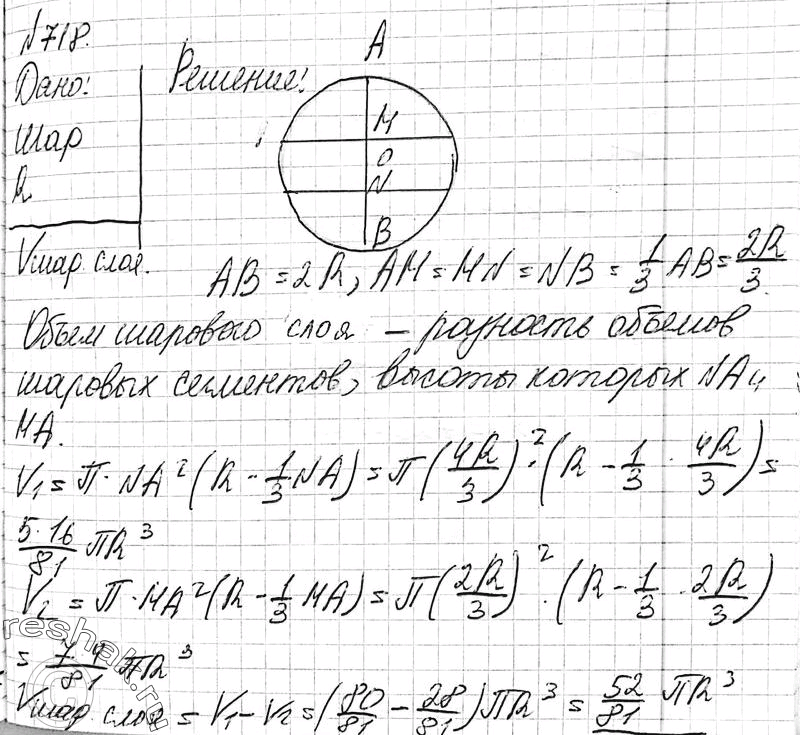 N718.
Дано:
Шар
R
Vшар. слоя.
Решение:
A
M
O
N
B
AB = 2R, AM = MN = NB = 1/3 AB = 2R/3.
Объем шарового слоя – разность объемов
шаровых сегментов, высоты которых NA и
MA.
V₁ = π · NA² (R - 1/3 NA) = π (4R/3)² · (R - 1/3 · 4R/3) =
5·16/81 πR³
V₂ = π · MA² (R - 1/3 MA) = π (2R/3)² · (R - 1/3 · 2R/3)
= 7·4/81 πR³
Vшар слоя = V₁ - V₂ = (80/81 - 28/81) πR³ = 52/81 πR³
reshak.ru